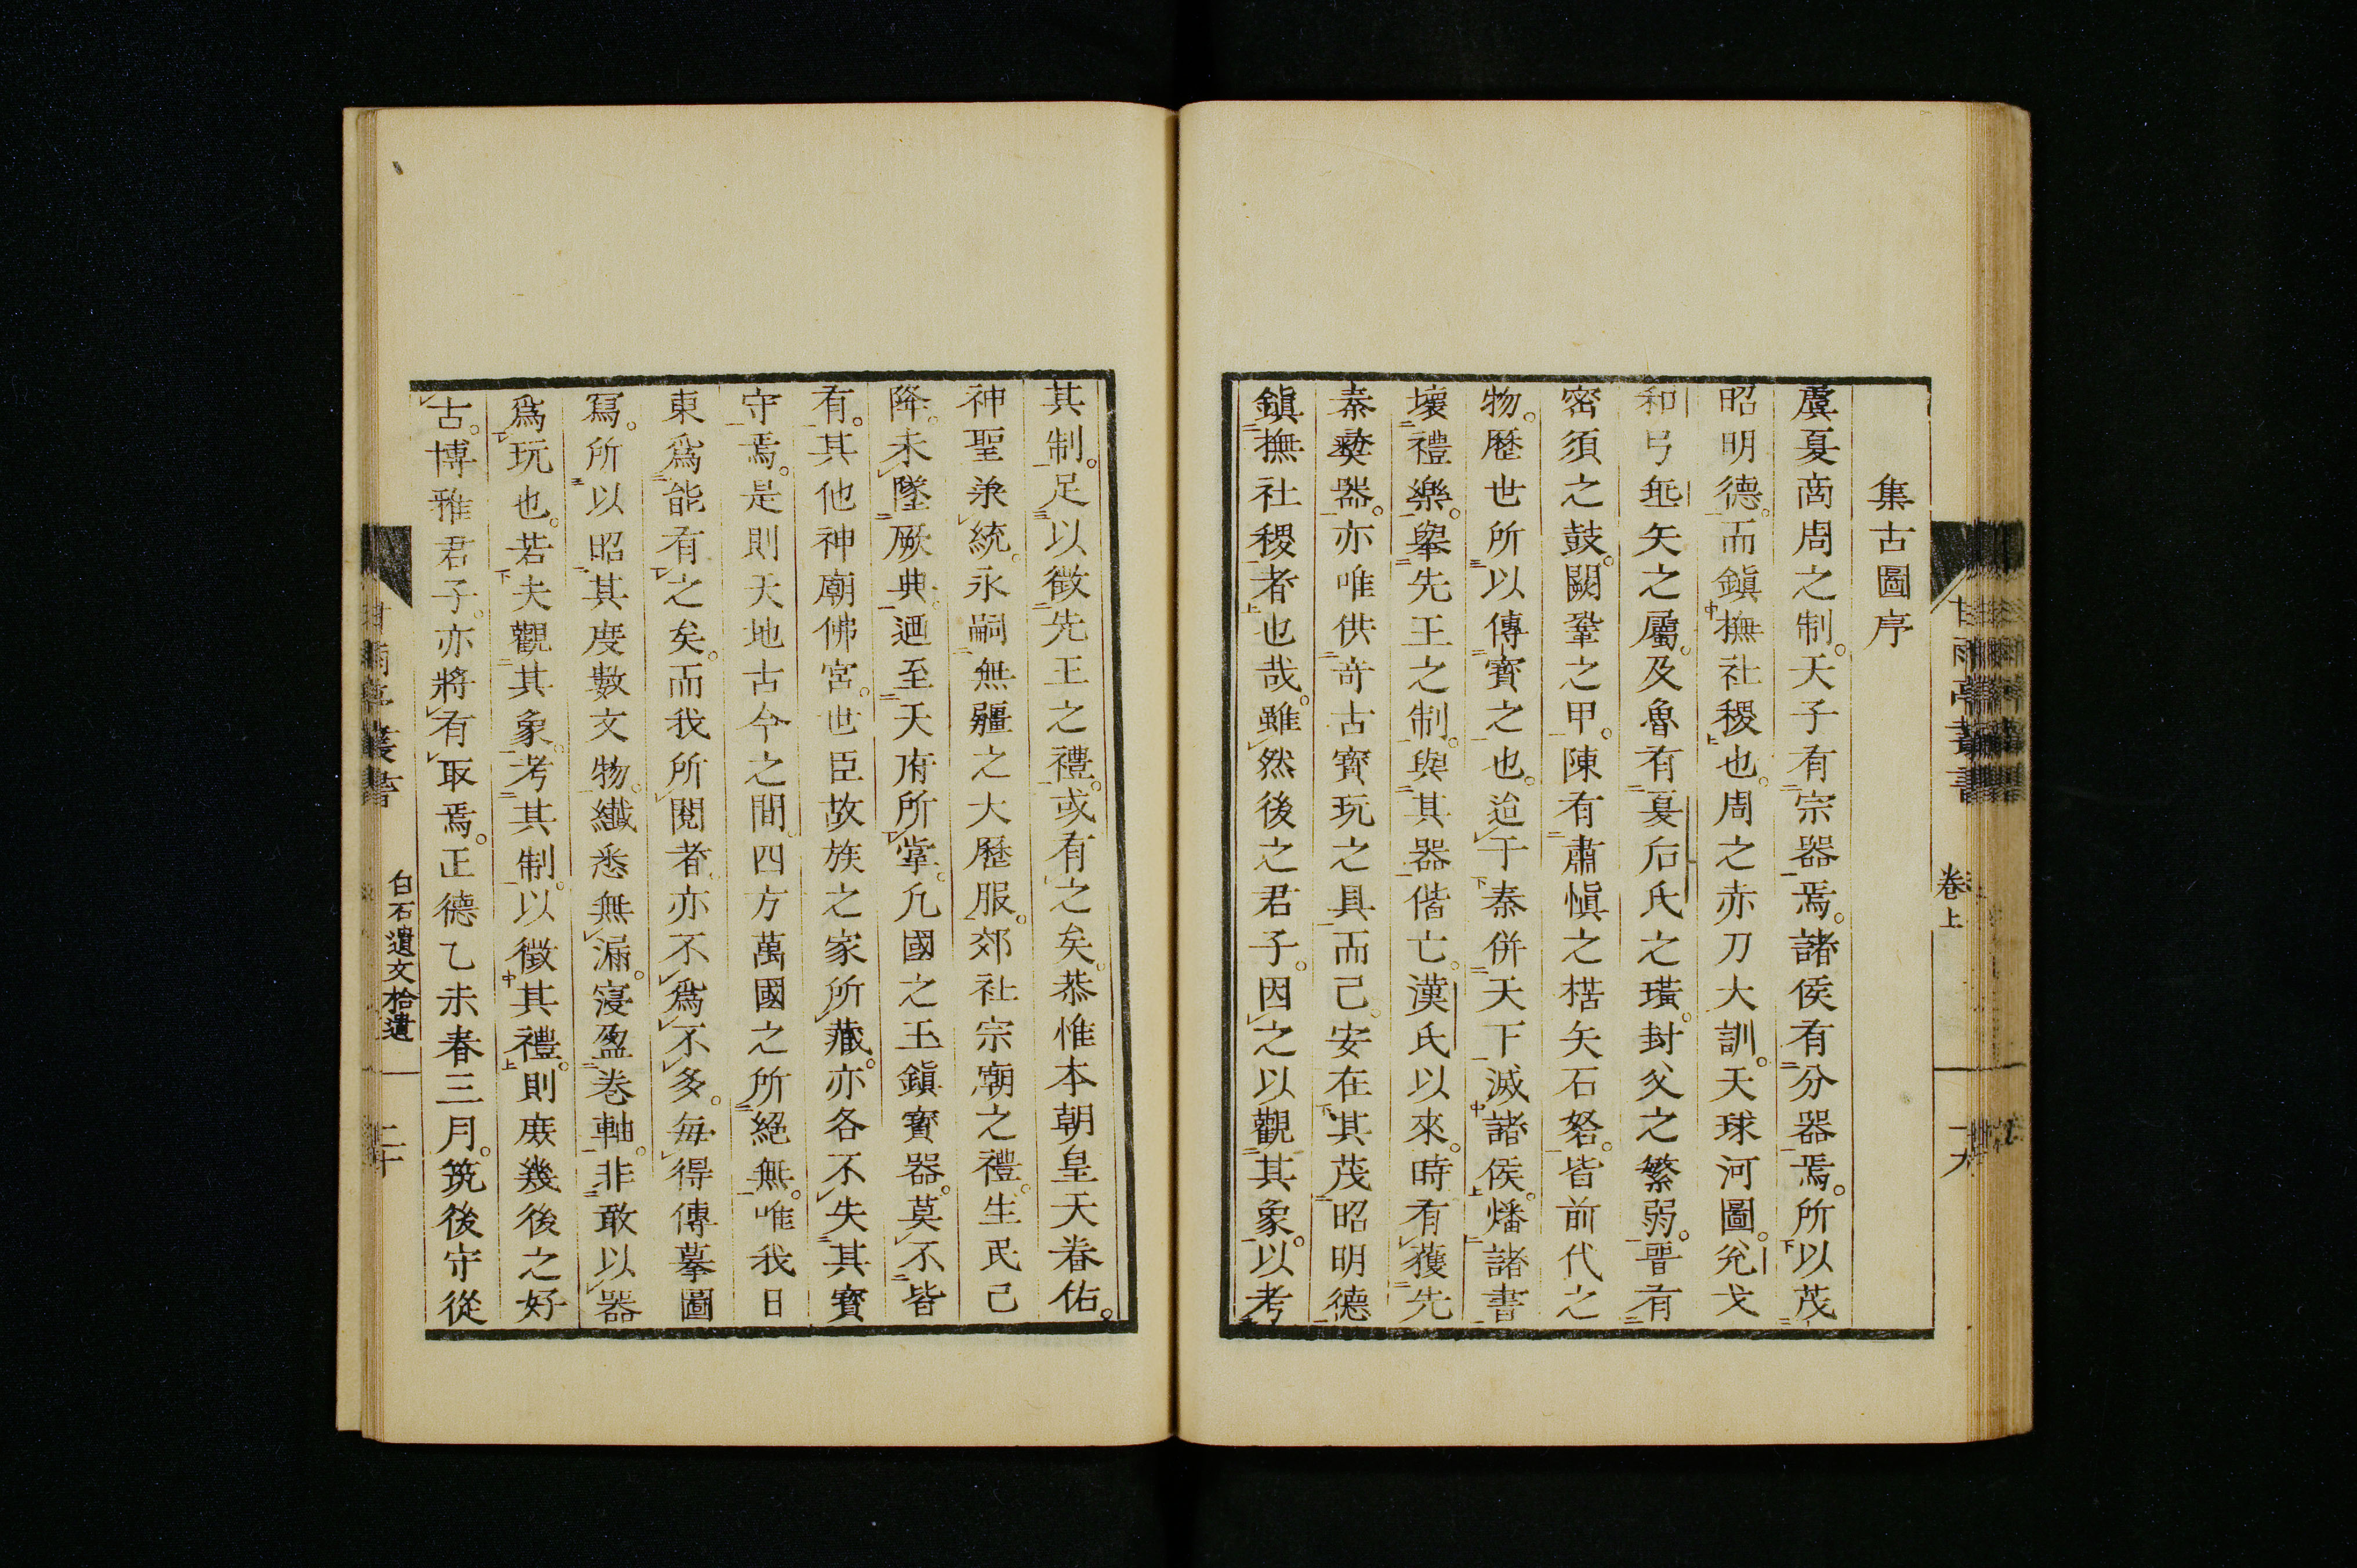 甘雨亭叢書
卷上
十九
集古圖序
虞夏商周之制。天子有宗器焉。諸侯有分器焉。所以茂
昭明德。而鎭撫社稷也。周之赤刀大訓。天球河圖。兊戈
和弓垂矢之屬。及魯有夏后氏之璜。封父之繁弱。晉有
密須之鼓。闕鞏之甲。陳有肅愼之楛矢石砮。皆前代之
物。歷世所以傳寶之也。迨于秦併天下。滅諸侯。燔諸書
壞禮樂。舉先王之制。與其器偕亡。漢氏以來。時有獲先
秦彝器。亦唯供奇古寶玩之具而已。安在其茂昭明德
鎭撫社稷者也哉。雖然後之君子。因之以觀其象。以考
其制。足以徵先王之禮。或有之矣。恭惟本朝皇天眷佑。
神聖承統。永嗣無疆之大歷服。郊社宗廟之禮。生民已
降。未墜厥典。迺至天府所掌。凡國之玉鎭寶器。莫不皆
有。其他神廟佛宮。世臣故族之家所藏。亦各不失其寶
守焉。是則天地古今之間。四方萬國之所絕無。唯我日
東爲能有之矣。而我所閱者。亦不爲不多。每得傳摹圖
寫。所以昭其度數文物。纖悉無漏。寖盈卷軸。非敢以器
爲玩也。若夫觀其象。考其制。以徵其禮。則庶幾後之好
古。博雅君子。亦將有取焉。正德乙未春三月。筑後守從
甘雨亭叢書
白石遺文拾遺
二十